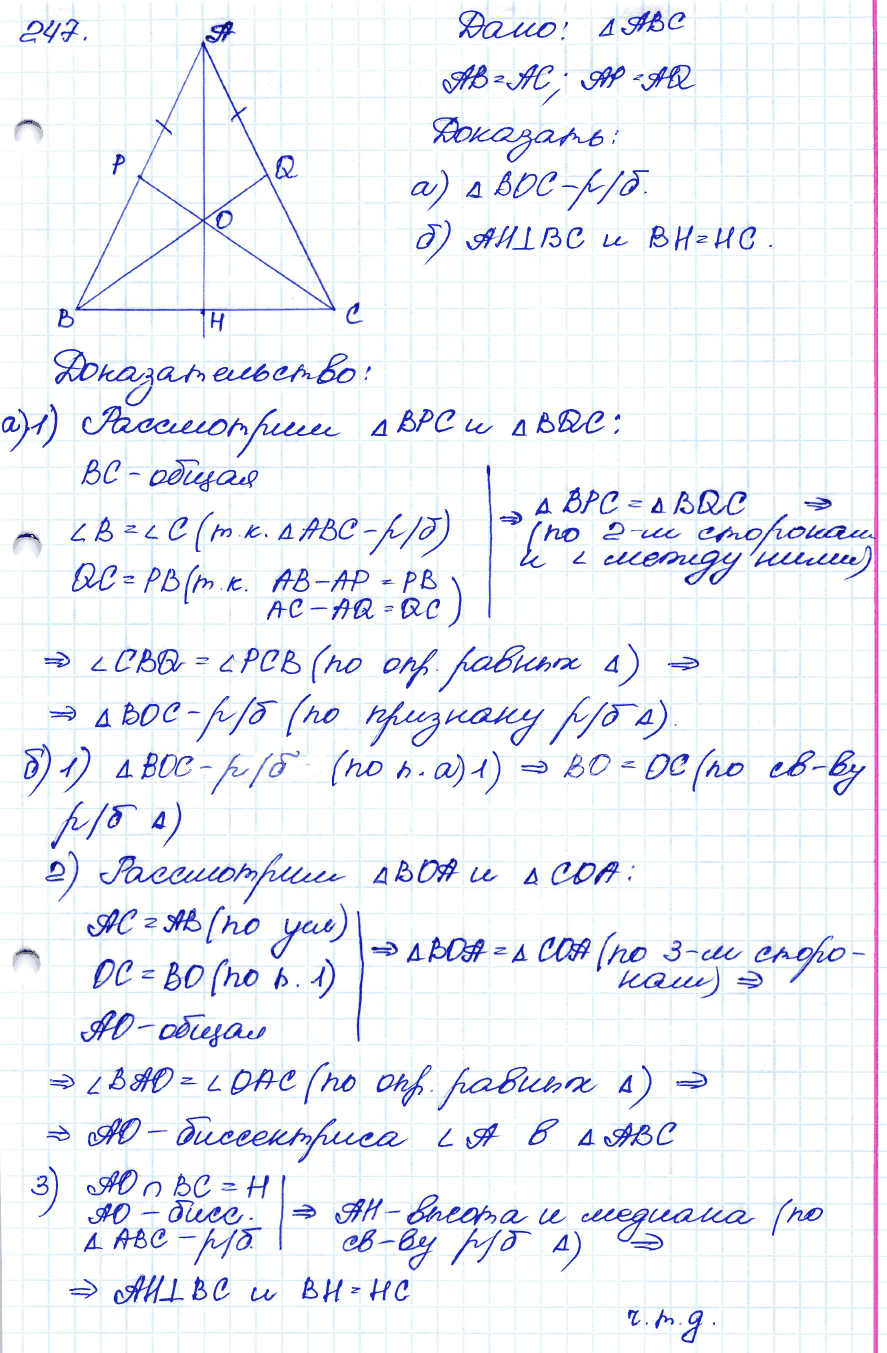 247.
A
P
Q
O
B
H
C
Дано: △ABC
AB=AC; AP=AQ
Доказать:
а) △BOC-р/б.
б) AH⊥BC и BH=HC.
Доказательство:
а)1) Рассмотрим △BPC и △BQC:
BC-общая
∠B=∠C (т.к. △ABC-р/б)
QC=PB (т.к. AB-AP=PB
AC-AQ=QC)
⇒ △BPC=△BQC ⇒
(по 2-м сторонам
и ∠ между ними)
⇒ ∠CBQ=∠PCB (по опр. равных △) ⇒
⇒ △BOC-р/б (по признаку р/б △).
б)1) △BOC-р/б (по п.а)1) ⇒ BO=OC (по св-ву
р/б △)
2) Рассмотрим △BOA и △COA:
AC=AB (по усл)
OC=BO (по п.1)
AO-общая
⇒ △BOA=△COA (по 3-м сторо-
нам) ⇒
⇒ ∠BAO=∠OAC (по опр. равных △) ⇒
⇒ AO-биссектриса ∠A в △ABC
3) AO∩BC=H
AO-бисс.
△ABC-р/б
⇒ AH-высота и медиана (по
св-ву р/б △) ⇒
⇒ AH⊥BC и BH=HC
ч.т.д.